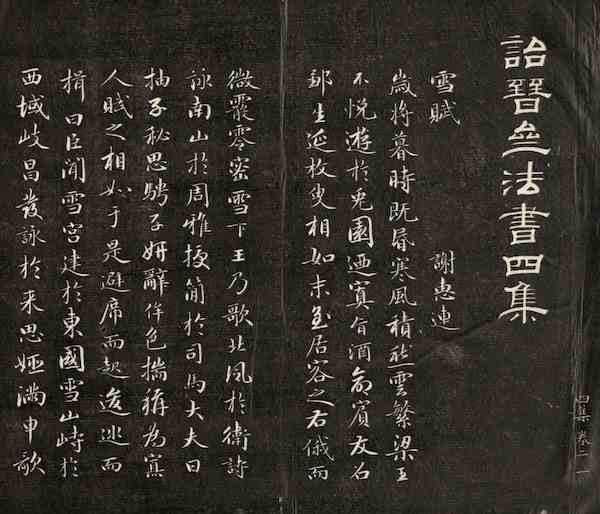 詒晉亝法書四集
雪賦 謝惠連
歲將暮時既昏寒風積愁雲繁梁王
不悅遊於兔園迺寘旨酒命賓友召
鄒生延枚叟相如末至居客之右俄而
微霰零密雪下王乃歌北風於衛詩
詠南山於周雅授簡於司馬大夫曰
抽子秘思騁子妍辭侔色揣稱為寡
人賦之相如于是避席而起逡巡而
揖曰臣聞雪宮建於東國雪山峙於
西域岐昌發詠於來思姬滿申歌
四集卷二 一